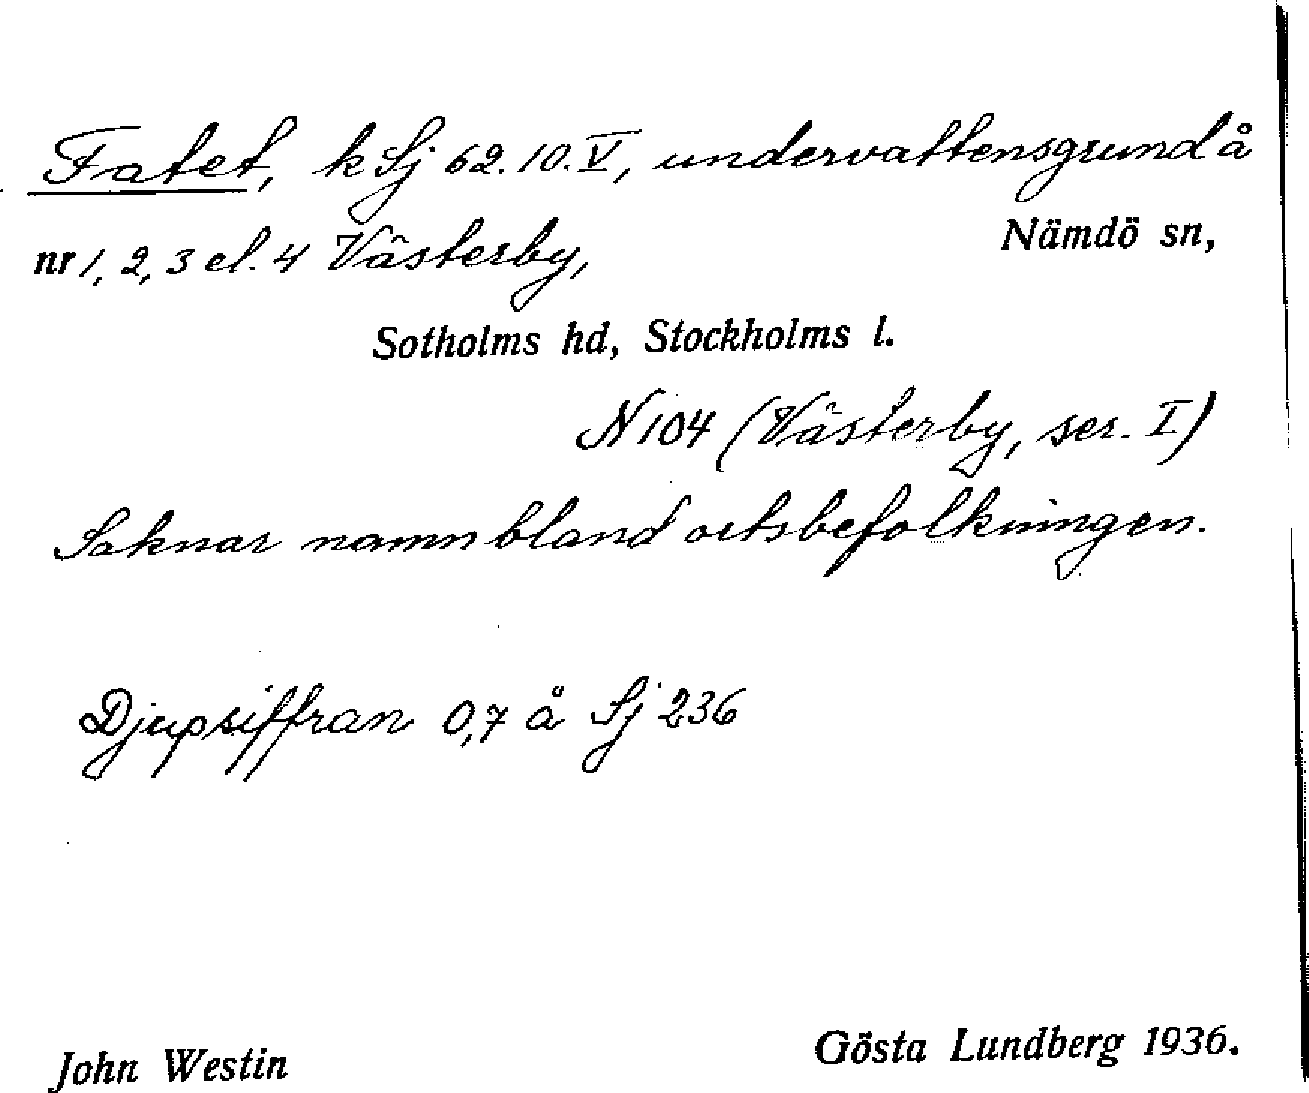 Fatet, k Sj 62.10.V, undervattensgrund å
nr 1, 2, 3 el. 4 Västerby, Nämdö sn,
Sotholms hd, Stockholms l.
N 104 (Västerby, ser. I)
Saknar namn bland ortsbefolkningen.
Djupsiffran 0,7 å Sj 236
John Westin Gösta Lundberg 1936.